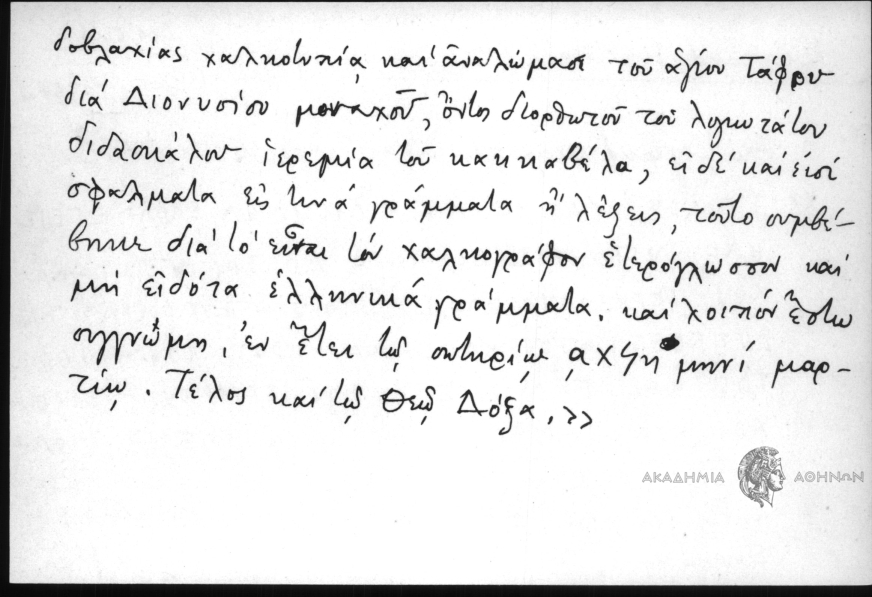 δοβλαχίας χαλκοτυπίᾳ καὶ ἀναλώμασι τοῦ ἁγίου Τάφου
διὰ Διονυσίου μοναχοῦ, ὄντος διορθωτοῦ τοῦ λογιωτάτου
διδασκάλου ἱερεμία τοῦ κακκαβέλα, εἰ δὲ καὶ εἰσὶ
σφάλματα εἰς τινὰ γράμματα ἢ λέξεις, τοῦτο συμβέ-
βηκε διὰ τὸ εἶναι τὸν χαλκογράφον ἑτερόγλωσσον καὶ
μὴ εἰδότα ἑλληνικὰ γράμματα. καὶ λοιπὸν ἔστω
συγγνώμη, ἐν ἔτει τῷ σωτηρίῳ αχϟη μηνὶ μαρ-
τίῳ. Τέλος καὶ τῷ Θεῷ Δόξα. »
ΑΚΑΔΗΜΙΑ ΑΘΗΝΩΝ